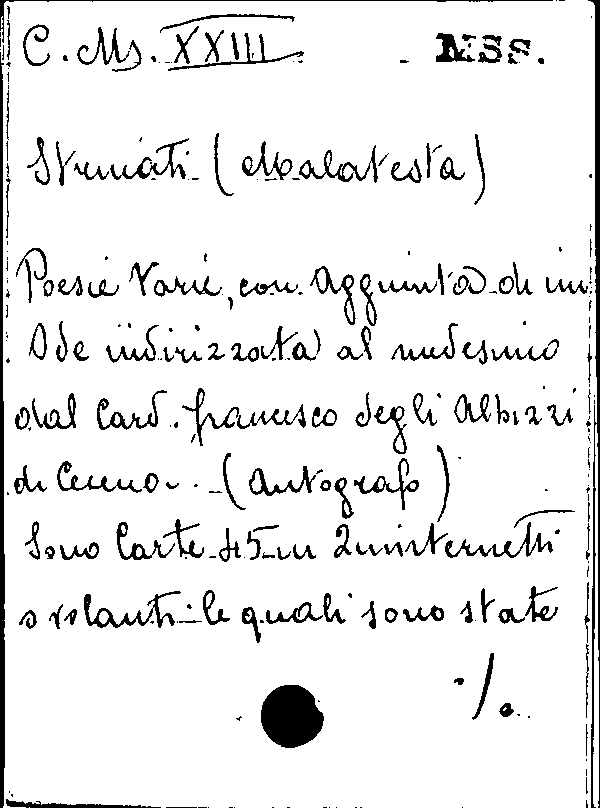 C. Ms. XXIII MSS.
Strinati (Malatesta)
Poesie Varie, con Aggiunta di un
Ode indirizzata al medesimo
dal Card. Francesco degli Albizzi
di Cesena. (Autografo)
Sono Carte 45 in Quinternetti
o volanti le quali sono state
./.